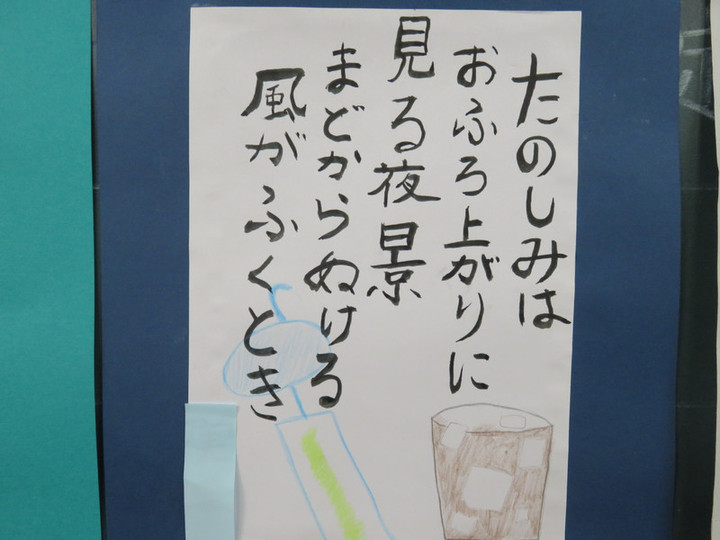 たのしみは
おふろ上がりに
見る夜景
まどからぬける
風がふくとき